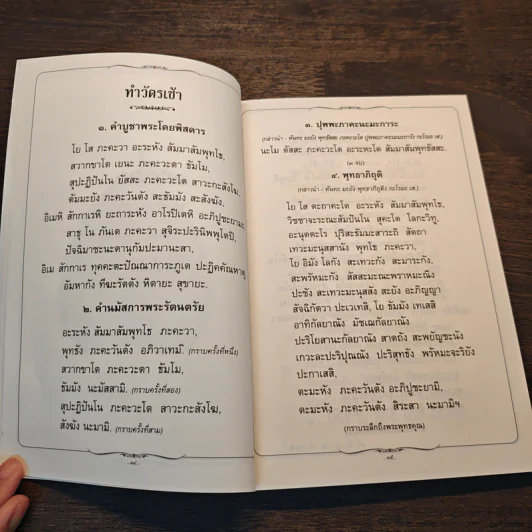 ทำวัตรเช้า
๑. คำบูชาพระโดยพิสดาร
โย โส ภะคะวา อะระหัง สัมมาสัมพุทโธ,
สวากขาโต เยนะ ภะคะวะตา ธัมโม,
สุปะฏิปันโน ยัสสะ ภะคะวะโต สาวะกะสังโฆ,
ตัมมะยัง ภะคะวันตัง สะธัมมัง สะสังฆัง,
อิเมหิ สักกาเรหิ ยะถาระหัง อาโรปิเตหิ อะภิปูชะยามะ
สาธุ โน ภันเต ภะคะวา สุจิระปะรินิพพุโตปิ,
ปัจฉิมาชะนะตานุกัมปะมานะสา,
อิเม สักกาเร ทุคคะตะปัณณาการะภูเต ปะฏิคคัณหาตุ
อัมหากัง ทีฆะรัตตัง หิตายะ สุขายะ.
๒. คำนมัสการพระรัตนตรัย
อะระหัง สัมมาสัมพุทโธ ภะคะวา,
พุทธัง ภะคะวันตัง อภิวาเทมิ. (กราบครั้งที่หนึ่ง)
สวากขาโต ภะคะวะตา ธัมโม,
ธัมมัง นะมัสสามิ. (กราบครั้งที่สอง)
สุปะฏิปันโน ภะคะวะโต สาวะกะสังโฆ,
สังฆัง นะมามิ. (กราบครั้งที่สาม)
๓. ปุพพะภาคะนะมะการะ
(กล่าวนำ - หันทะ มะยัง พุทธัสสะ ภะคะวะโต ปุพพะภาคะนะมะการัง กะโรมะ เส)
นะโม ตัสสะ ภะคะวะโต อะระหะโต สัมมาสัมพุทธัสสะ.
(๓ จบ)
๔. พุทธาภิถุติ
(กล่าวนำ - หันทะ มะยัง พุทธาภิถุติง กะโรมะ เส)
โย โส ตะถาคะโต อะระหัง สัมมาสัมพุทโธ,
วิชชาจะระณะสัมปันโน สุคะโต โลกะวิทู,
อะนุตตะโร ปุริสะธัมมะสาระถิ สัตถา
เทวะมะนุสสานัง พุทโธ ภะคะวา,
โย อิมัง โลกัง สะเทวะกัง สะมาระกัง,
สะพรัหมะกัง สัสสะมะณะพราหมะณิง
ปะชัง สะเทวะมะนุสสัง สะยัง อะภิญญา
สัจฉิกัตวา ปะเวเทสิ, โย ธัมมัง เทเสสิ
อาทิกัลยาณัง มัชเฌกัลยาณัง
ปะริโยสานะกัลยาณัง สาตถัง สะพยัญชะนัง
เกวะละปะริปุณณัง ปะริสุทธัง พรัหมะจะริยัง
ปะกาเสสิ,
ตะมะหัง ภะคะวันตัง อะภิปูชะยามิ,
ตะมะหัง ภะคะวันตัง สิระสา นะมามิฯ
(กราบระลึกถึงพระพุทธคุณ)